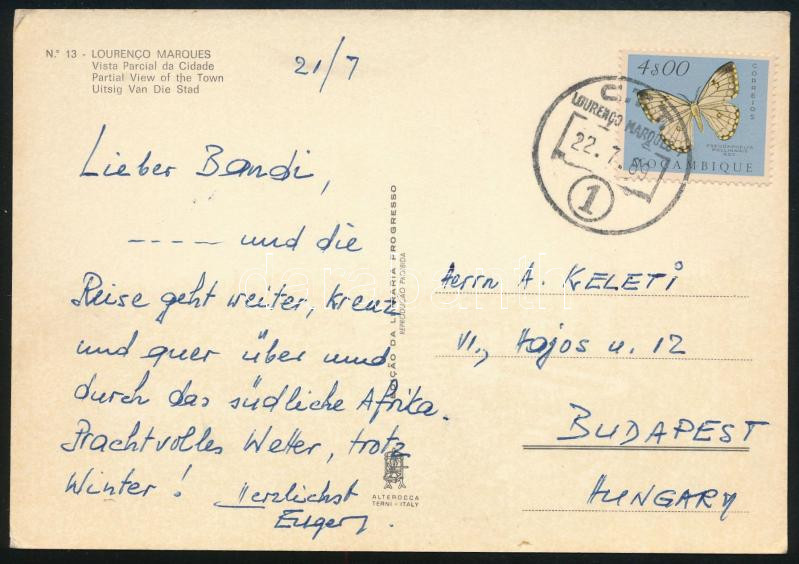 N.° 13 - LOURENÇO MARQUES
Vista Parcial da Cidade
Partial View of the Town
Uitsig Van Die Stad
21/7
Lieber Bandi,
----- und die
Reise geht weiter, kreuz
und quer über und
durch das südliche Afrika.
Prachtvolles Wetter, trotz
Winter! Herzlichst
Eugen.
EDIÇÃO DA LIVRARIA PROGRESSO
REPRODUÇÃO PROIBIDA
ALTEROCCA
TERNI - ITALY
4$00
CORREIOS
MOÇAMBIQUE
LOURENÇO MARQUES
22. 7.
1
Herrn A. KELETI
VI., Hajos u. 12
BUDAPEST
HUNGARY